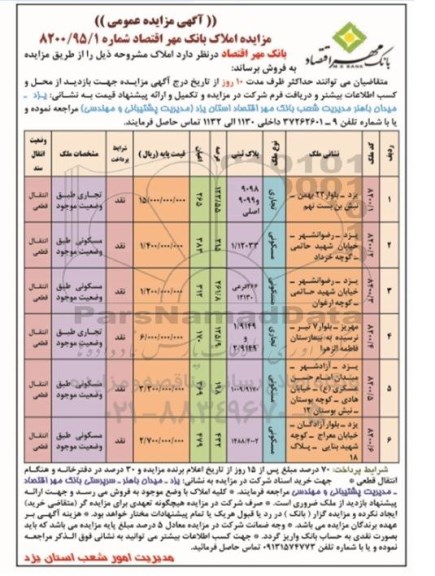 (( آگهی مزایده عمومی ))
مزایده املاک بانک مهر اقتصاد شماره ۸۲۰۰/۹۵/۱
بانک مهر اقتصاد
بانک مهر اقتصاد درنظر دارد املاک مشروحه ذیل را از طریق مزایده
به فروش برساند:
متقاضیان می توانند حداکثر ظرف مدت ۱۰ روز از تاریخ درج آگهی مزایده جهت بازدید از محل و
کسب اطلاعات بیشتر و دریافت فرم شرکت در مزایده و تکمیل و ارائه پیشنهاد قیمت به نشانی: یزد ـ
میدان باهنر مدیریت شعب بانک مهر اقتصاد استان یزد (مدیریت پشتیبانی و مهندسی) مراجعه نموده و
یا با شماره تلفن ۹ ـ ۳۷۲۶۲۶۰۱ داخلی ۱۱۳۰ الی ۱۱۳۲ تماس حاصل فرمایند.
ردیف کد ملک نشانی ملک پلاک ثبتی نوع ملک عرصه اعیان قیمت پایه (ریال) شرایط پرداخت مشخصات ملک وضعیت انتقال سند
۱ ۸۲۰۰/۱ یزد ـ بلوار ۲۲ بهمن ـ نبش بن بست نهم ۹۰۹۸ و ۹۰۹۹ اصلی تجاری ۲۶۵ ۱۵/۰۰۰/۰۰۰/۰۰۰ نقد تجاری طبق وضعیت موجود انتقال قطعی
۲ ۸۲۰۰/۲ یزد ـ رضوانشهر ـ خیابان شهید حاتمی ـ کوچه خرداد ۱/۱۲۰۳۳ مسکونی ۲۸۳ ۱/۴۰۰/۰۰۰/۰۰۰ نقد مسکونی طبق وضعیت موجود انتقال قطعی
۳ ۸۲۰۰/۳ یزد ـ رضوانشهر ـ خیابان شهید حاتمی ـ کوچه ارغوان مسکونی ۲۶۱/۸ ۳۱۲ ۱/۲۰۰/۰۰۰/۰۰۰ نقد مسکونی طبق وضعیت موجود انتقال قطعی
۴ ۸۲۰۰/۴ مهریز ـ بلوار ۷ تیر ـ نرسیده به بیمارستان فاطمه الزهرا ۱/۹۱۴۹ و ۲/۹۱۴۹ تجاری ۱۷۰ ۶/۰۰۰/۰۰۰/۰۰۰ نقد تجاری طبق وضعیت موجود انتقال قطعی
۵ ۸۲۰۰/۵ یزد ـ آزادشهر ـ میدان امام حسن عسکری (ع) ـ خیابان هادی ـ کوچه بوستان ـ نبش بوستان ۱۲ مسکونی ۳/۲۰۰/۰۰۰/۰۰۰ نقد مسکونی طبق وضعیت موجود انتقال قطعی
۶ ۸۲۰۰/۶ یزد ـ بلوار آزادگان ـ خیابان معراج ـ کوچه شهید بنایی ـ پلاک ۱۸ ۱۴۸۸/۴۰۰۲ مسکونی ۲۲۲ ۴۷۹ ۲/۷۰۰/۰۰۰/۰۰۰ نقد مسکونی طبق وضعیت موجود انتقال قطعی
شرایط پرداخت: ۷۰ درصد مبلغ پس از ۱۵ روز از تاریخ اعلام برنده مزایده و ۳۰ درصد در دفترخانه و هنگام
انتقال قطعی * جهت خرید اسناد شرکت در مزایده به نشانی: یزد ـ میدان باهنر ـ سرپرستی بانک مهر اقتصاد
ـ مدیریت پشتیبانی و مهندسی مراجعه فرمایند. * کلیه املاک با وضع موجود به فروش می رسند و جهت ارائه
پیشنهاد بازدید از ملک ضروری است. * صرف شرکت در مزایده هیچگونه تعهدی برای مزایده گر (متقاضی خرید)
ایجاد نکرده و مزایده گزار (بانک) در رد یا قبول هریک یا تمام پیشنهادات مختار خواهد بود. * هزینه آگهی بر
عهده برندگان مزایده می باشد. * وجه ضمانت شرکت در مزایده معادل ۵ درصد مبلغ پایه مزایده می باشد که باید
بصورت نقدی به حساب بانک واریز گردد. * جهت کسب اطلاعات بیشتر می توانید به نشانی فوق الذکر مراجعه
نموده و یا با شماره تلفن ۰۹۱۳۱۵۷۴۷۷۳ تماس حاصل فرمائید.
مدیریت امور شعب استان یزد
ParsNamadData
۰۲۱-۸۸۳۴۹۶۷۰